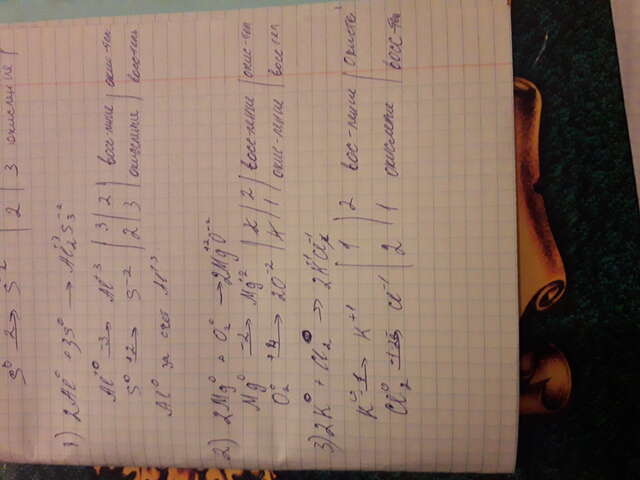 S⁰ 2→ S⁻² | 2 | 3 окисление |
1) 2Al⁰ + 3S⁰ → Al₂⁺³S₃⁻²
Al⁰ −3→ Al⁺³ | 3 | 2 | восс-ние | окис-тель
S⁰ +2→ S⁻² | 2 | 3 | окисление | восс-тель
Al⁰ за счёт Al⁺³
2) 2Mg⁰ + O₂⁰ → 2Mg⁺²O⁻²
Mg⁰ −2→ Mg⁺² | 2 | восс-ление | окис-тел
O₂⁰ +4→ 2O⁻² | 1 | окис-ление | восс тел
3) 2K⁰ + Cl₂⁰ → 2K⁺¹Cl⁻¹
K⁰ −1→ K⁺¹ | 1 | 2 восс-ление
Cl₂⁰ → Cl⁻¹ | 2 | 1 окисление восс-тел